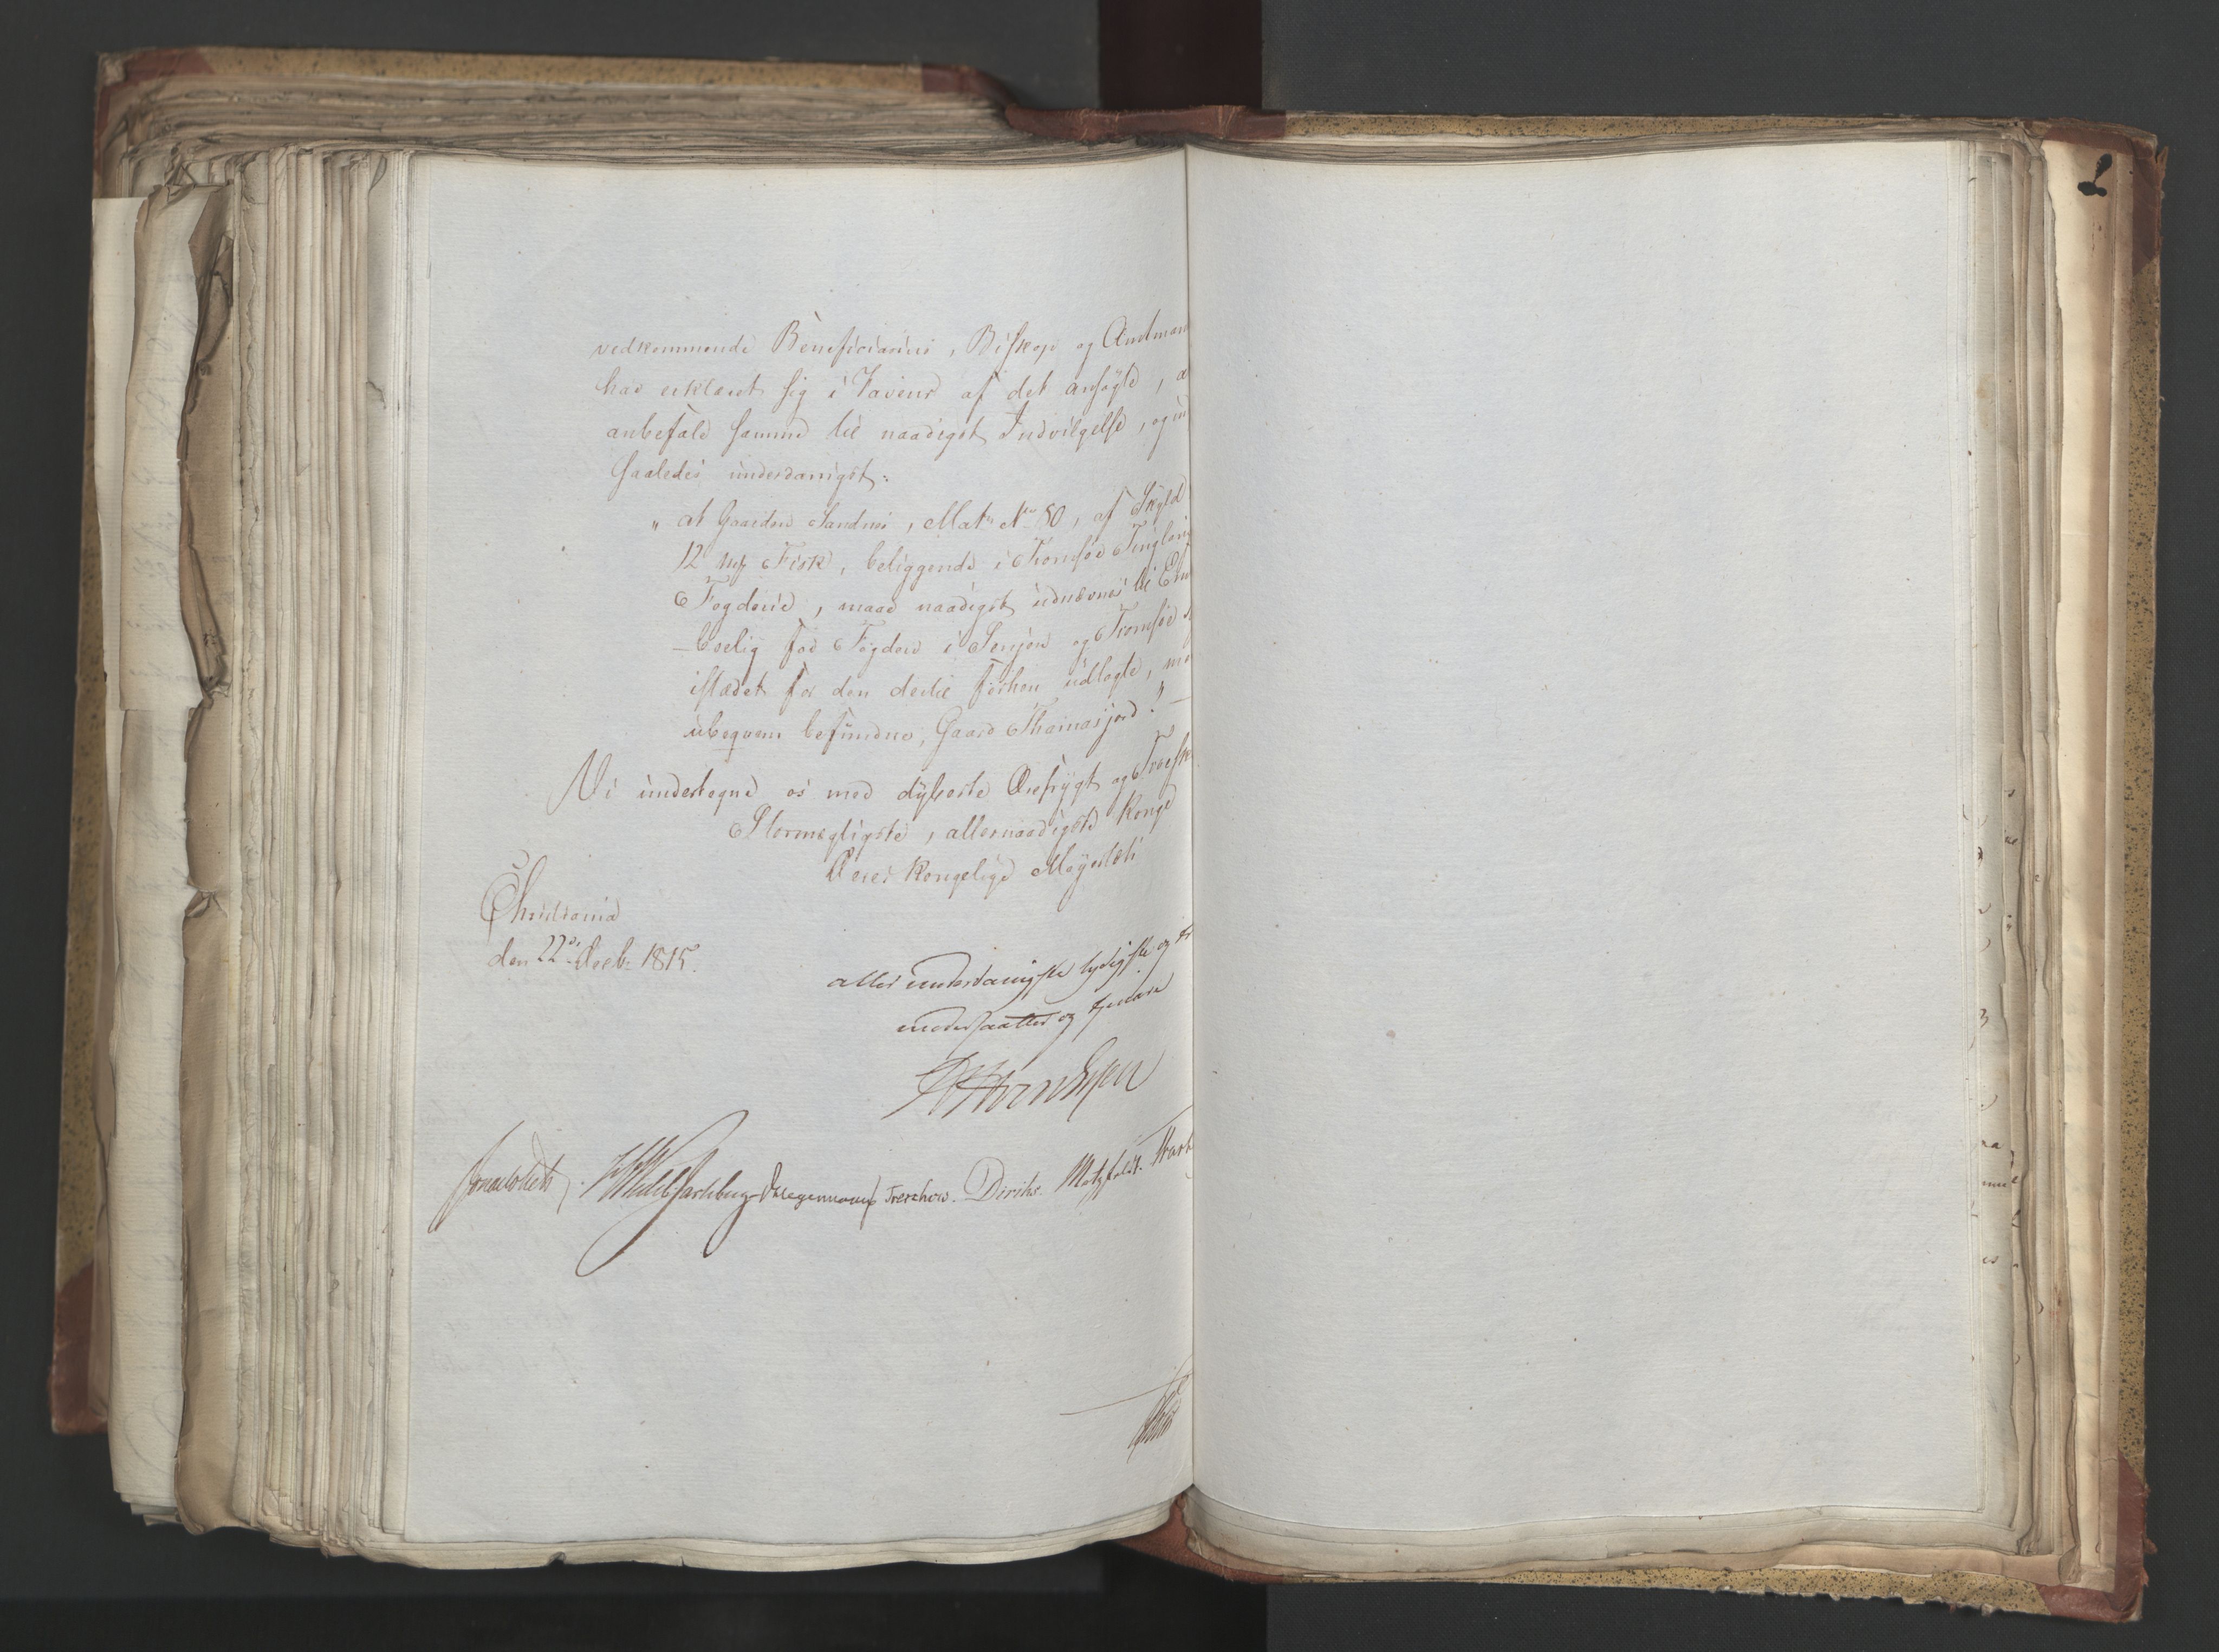 vedkommende Beneficiarius, Biskop og Amtman
har erklæret sig i Faveur af det ansøgte, a
anbefale samme til naadigst Indvilgelse, og in
saaledes underdanigst:
" at Gaarden Sandnes, Matr No 80, af Skyld
12 Fisk, beliggende i Tromsøe Tinglaug
Fogderie, maae naadigst udnævnes til Em
-bolig for Fogden i Senjen og Tromsøe
istædet for den dertil forhen udlagte, me
ubeqvem befundne, Gaard Thomasjord."
Vi undertegne os med dybeste Ærefrygt og Troesk
Stormægtigste, allernaadigste Konge
Deres Kongelige Mayestæts
Christiania
den 22de Decbr 1815.
aller underdanigste lydigste og tr
undersaatter og tjenere
Sommerhielm
HWedelJarlsberg Hegermann Treschow. Diriks. Motzfeldt.